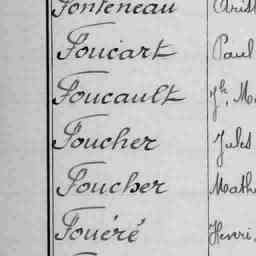 Fonteneau
Foucart Paul
Foucault Jh, Ma
Foucher Jules
Foucher Math
Fouéré Henri,